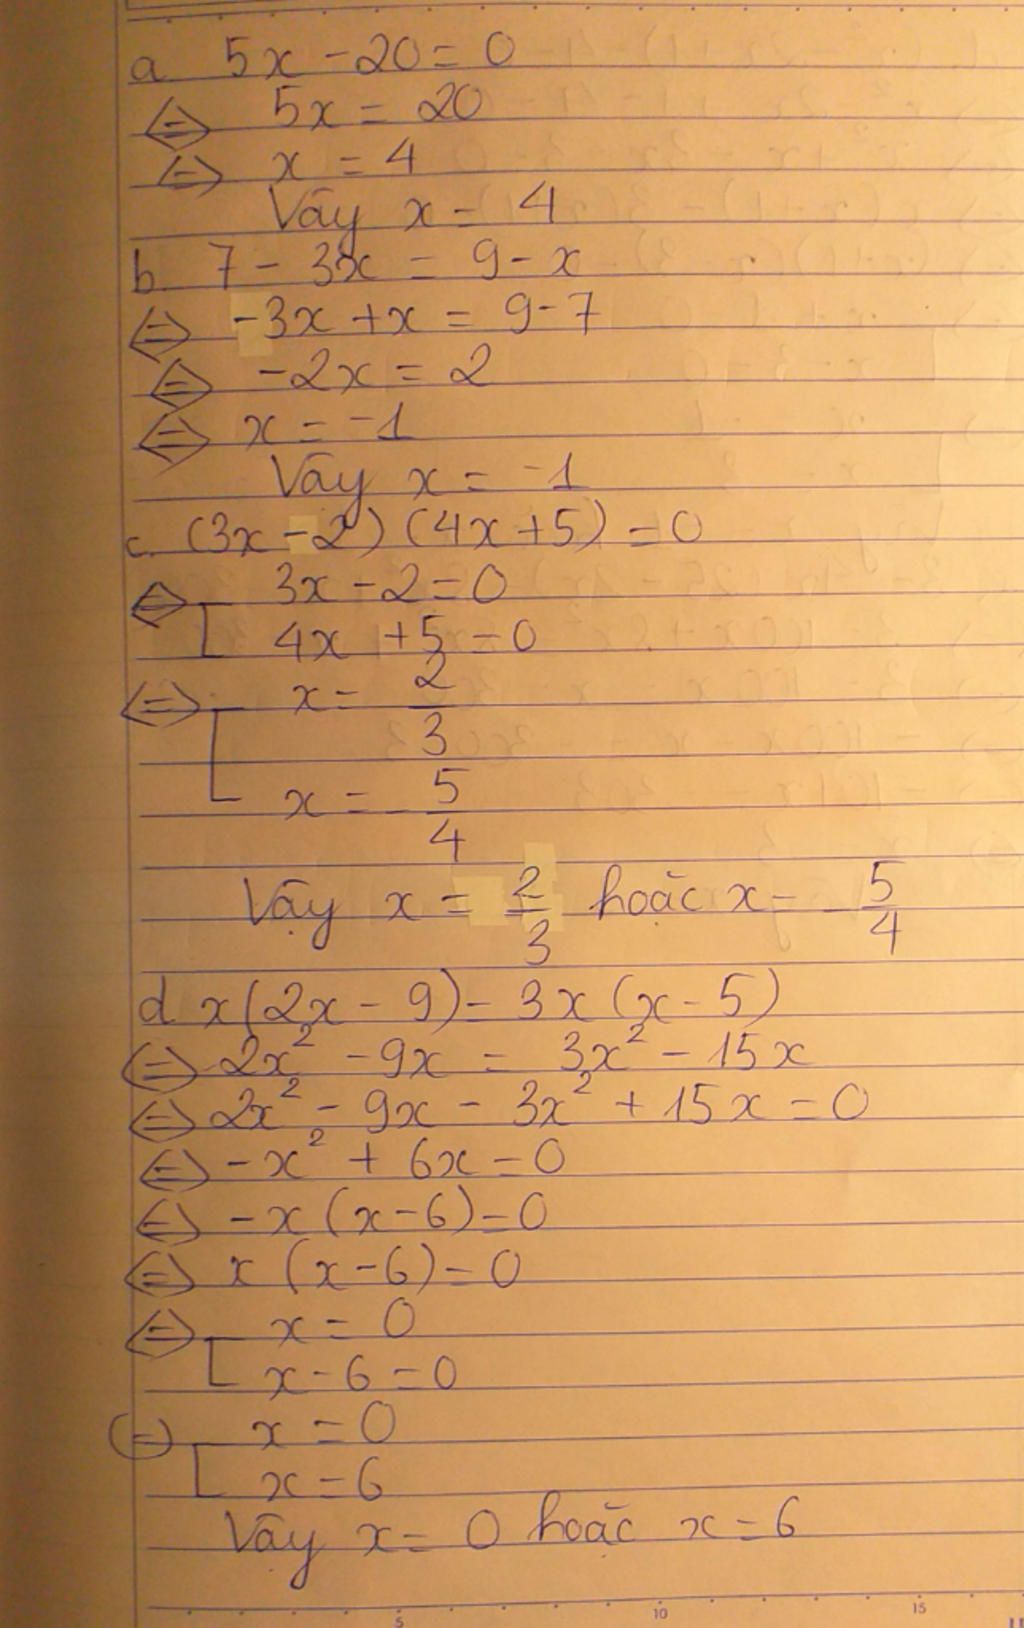 a. 5x - 20 = 0
<=> 5x = 20
<=> x = 4
Vậy x = 4
b. 7 - 3x = 9 - x
<=> -3x + x = 9 - 7
<=> -2x = 2
<=> x = -1
Vậy x = -1
c. (3x - 2) (4x + 5) = 0
<=> [ 3x - 2 = 0
4x + 5 = 0
<=> [ x = 2/3
x = - 5/4
Vậy x = 2/3 hoặc x = - 5/4
d x(2x - 9) = 3x (x - 5)
<=> 2x² - 9x = 3x² - 15x
<=> 2x² - 9x - 3x² + 15x = 0
<=> -x² + 6x = 0
<=> -x (x - 6) = 0
<=> x (x - 6) = 0
<=> [ x = 0
x - 6 = 0
<=> [ x = 0
x = 6
Vậy x = 0 hoặc x = 6
5 10 15